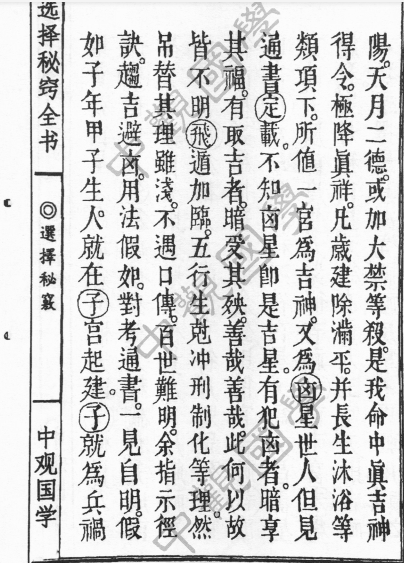 陽天月二德或加大禁等殺。是我命中眞吉神
得令。極降眞祥。凡歲建除滿平。并長生沐浴等
類項下。所値一宮為吉神。又為凶星。世人但見
通書定載。不知凶星卽是吉星。有犯凶者。暗享
其福。有取吉者。暗受其殃。善哉善哉。此何以故
皆不明飛遁加臨。五行生剋冲刑制化等理。然
吊替其理雖淺。不遇口傳。百世難明。余指示徑
訣。趨吉避凶。用法假如。對考通書。一見自明。假
如子年甲子生人。就在子宮起建。子就為兵禍
选择秘窍全书
◎選擇秘竅
中观国学
中觀國學
中觀國學